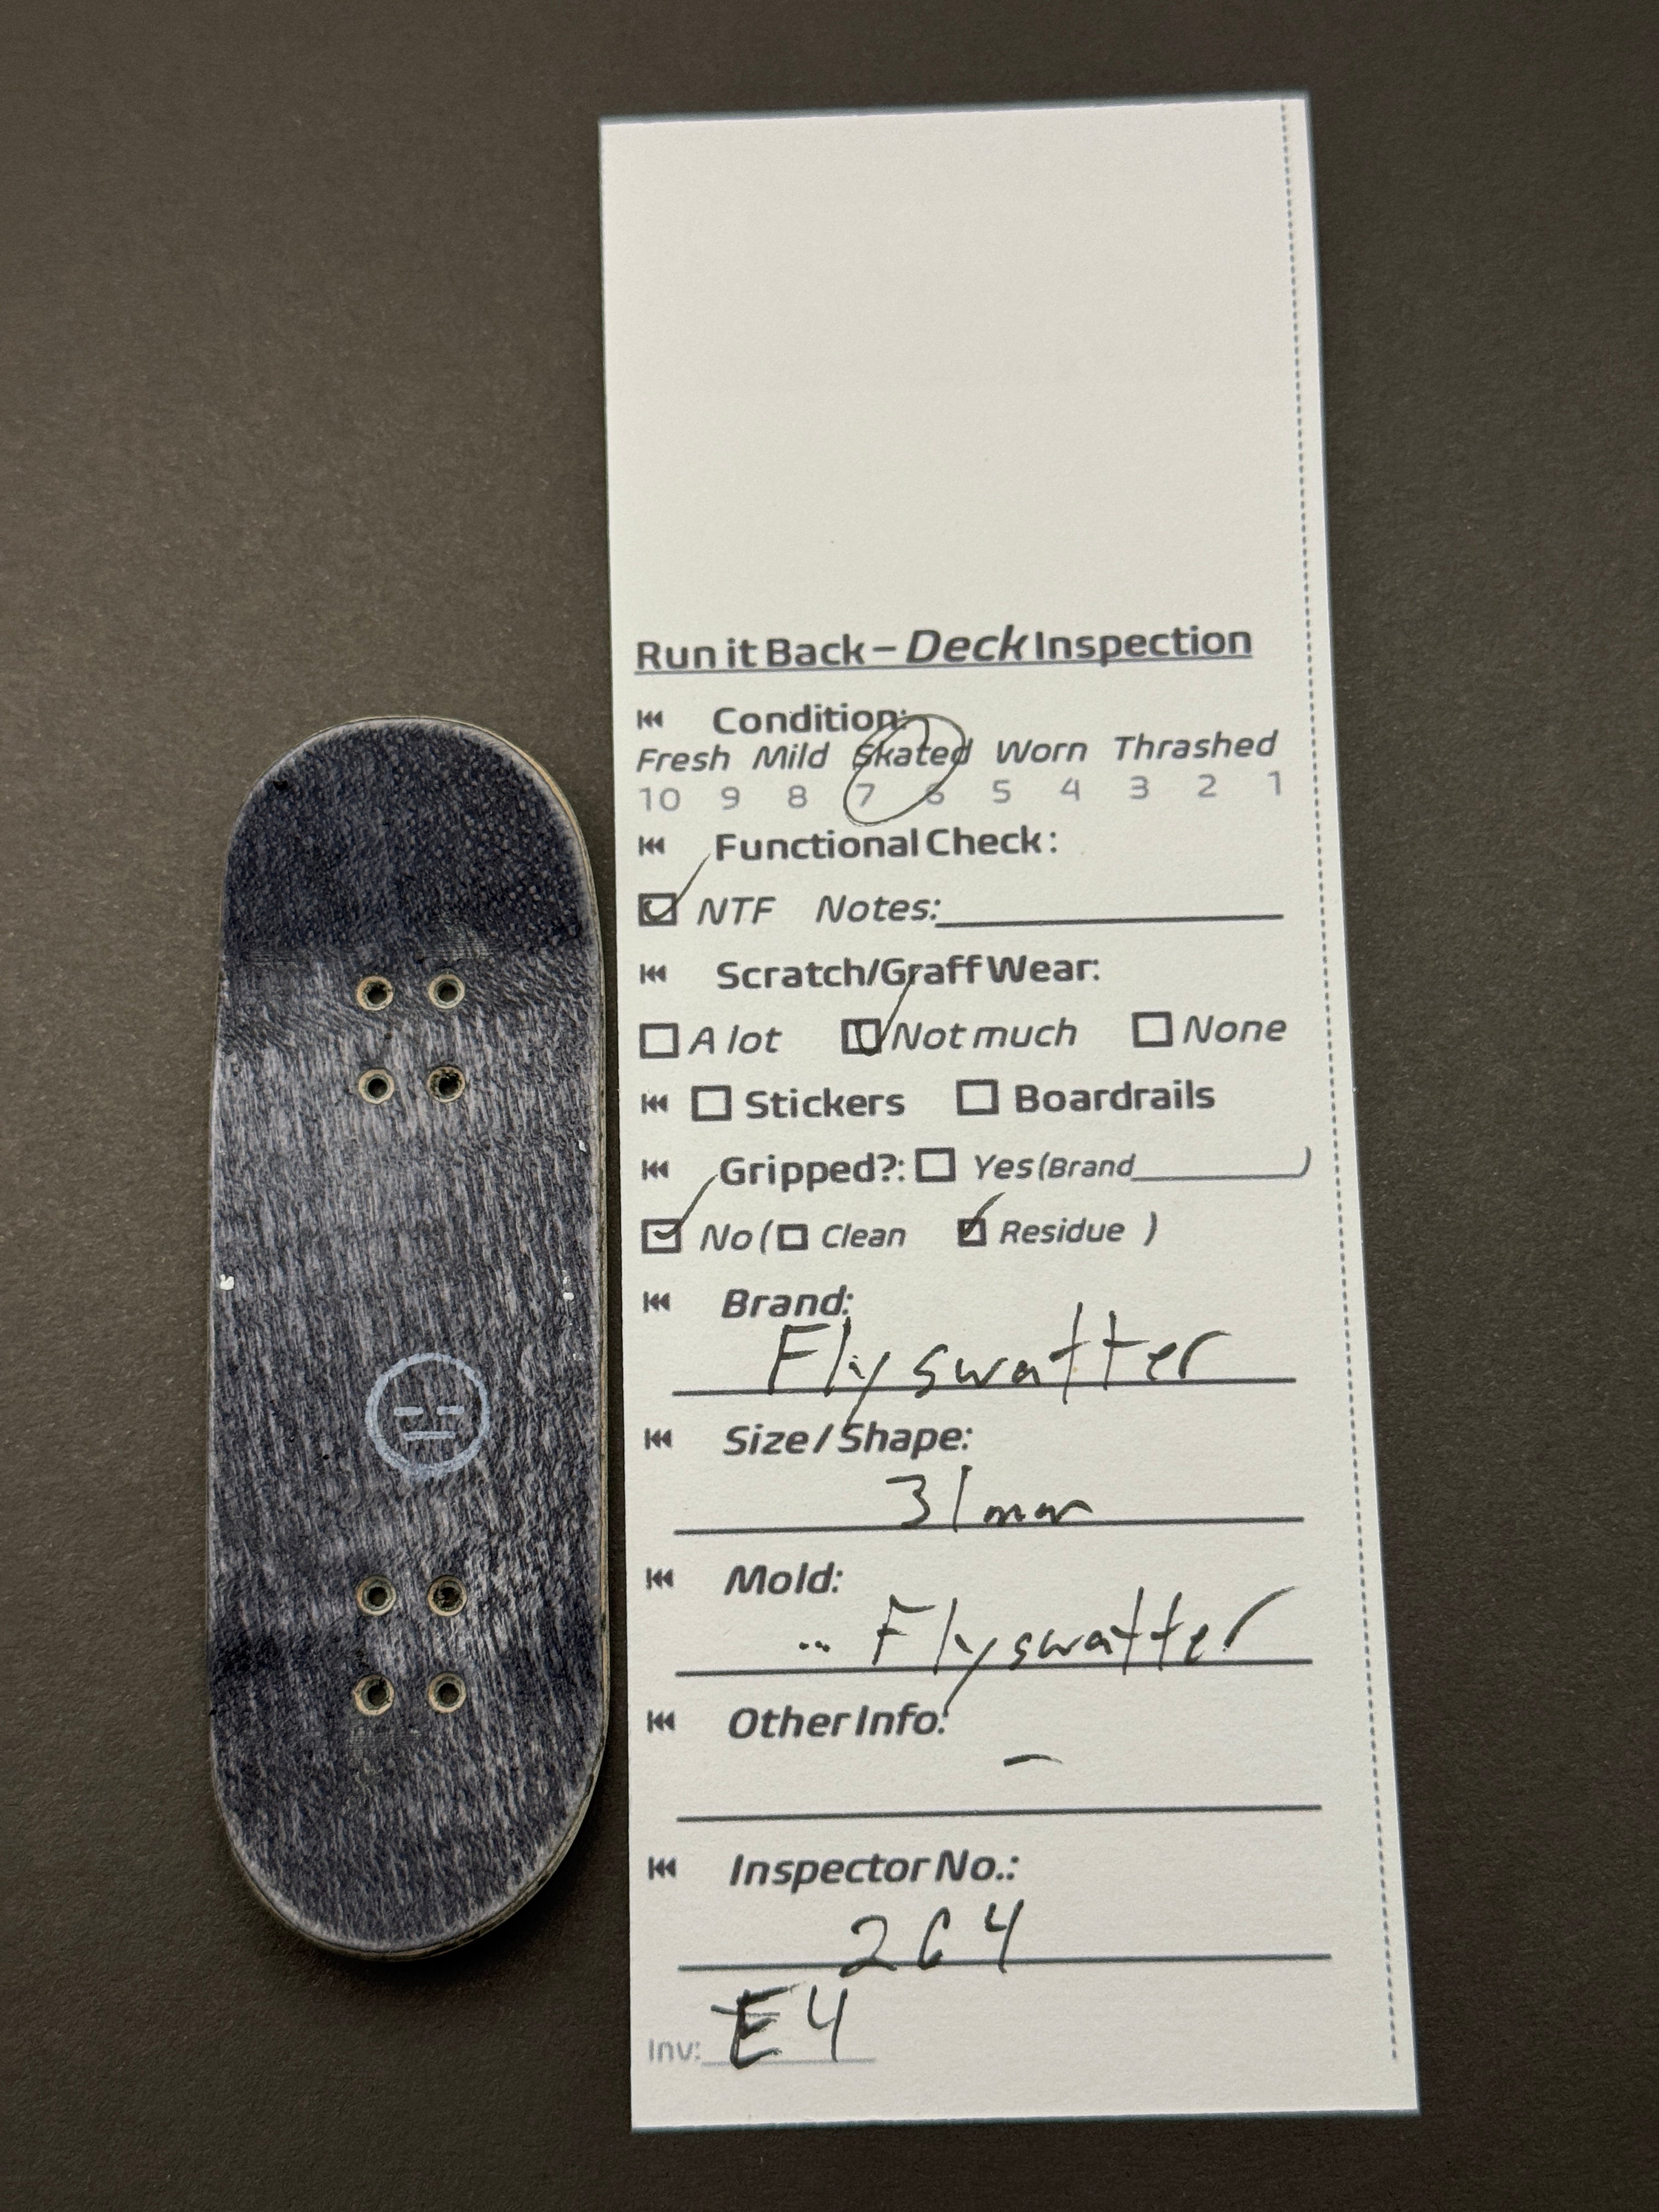 Run it Back – Deck Inspection
Condition:
Fresh Mild Skated Worn Thrashed
10 9 8 7 6 5 4 3 2 1
Functional Check:
NTF Notes:
Scratch/Graff Wear:
A lot Not much None
Stickers Boardrails
Gripped?: Yes (Brand )
No ( Clean Residue )
Brand:
Flyswatter
Size / Shape:
31mm
Mold:
... Flyswatter
Other Info:
–
Inspector No.:
264
Inv: E4